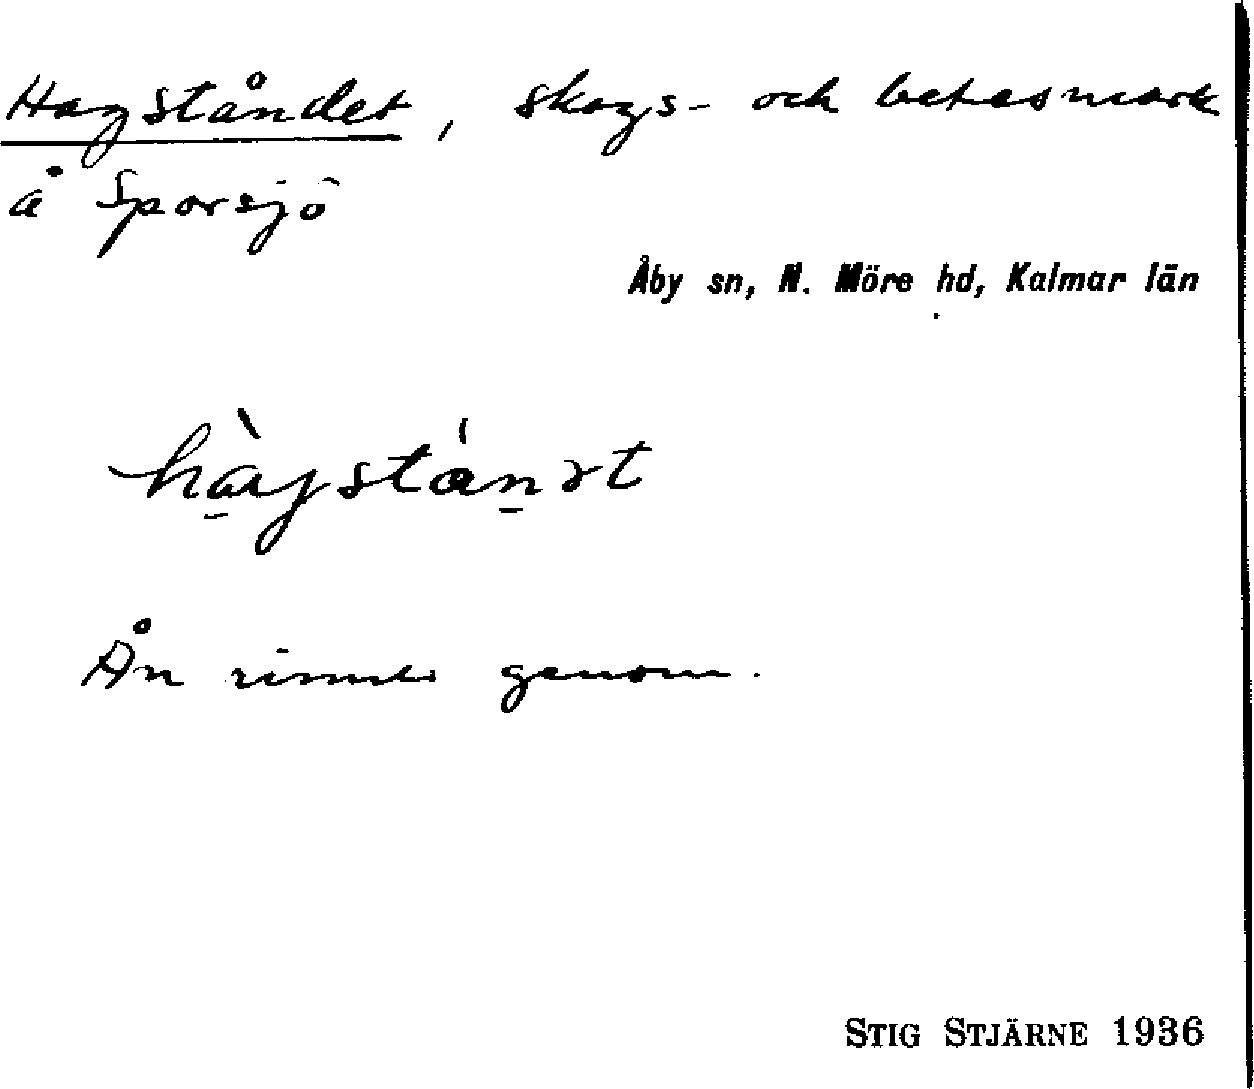 Hagståndet, skogs- och betesmark
å Sporsjö
Åby sn, N. Möre hd, Kalmar län
Ån rinner genom.
STIG STJÄRNE 1936